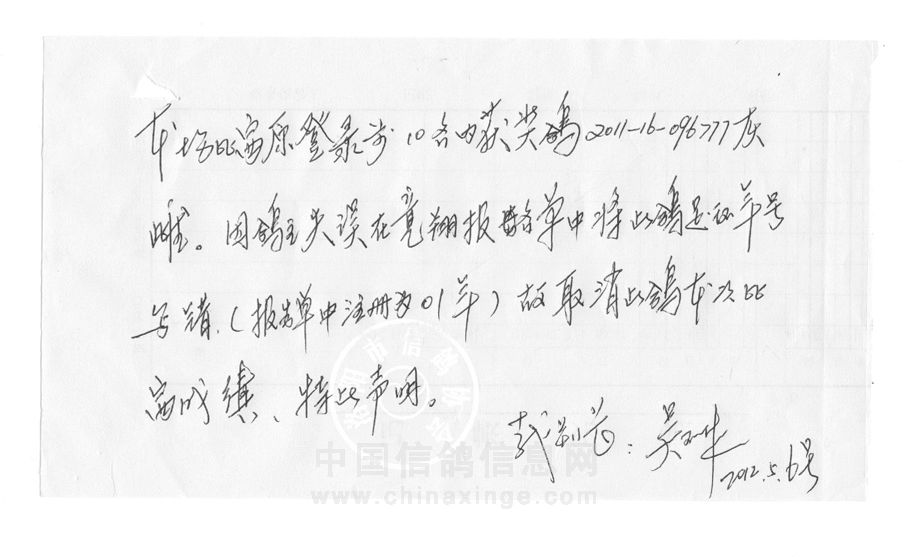 本场比赛原登录前10名内获奖鸽2011-16-096777灰
雌。因鸽主失误在竞翔报鸽单中将此鸽足环年号
写错.(报鸽单中注册为01年)故取消此鸽本次比
赛成绩、特此声明。
裁判长：吴
2012.5.6号
市信鸽
中国信鸽信息网
www.chinaxinge.com